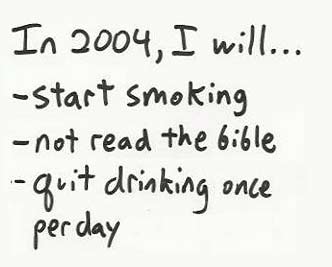 In 2004, I will...
-start smoking
-not read the bible
-quit drinking once
per day